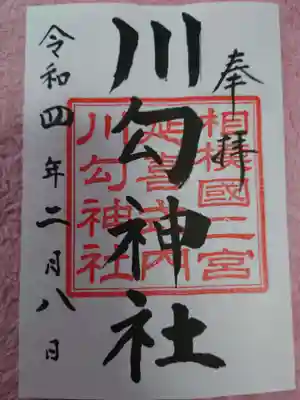 奉拝
川勾神社
相模國二宮
延喜式内
川勾神社
令和四年二月八日